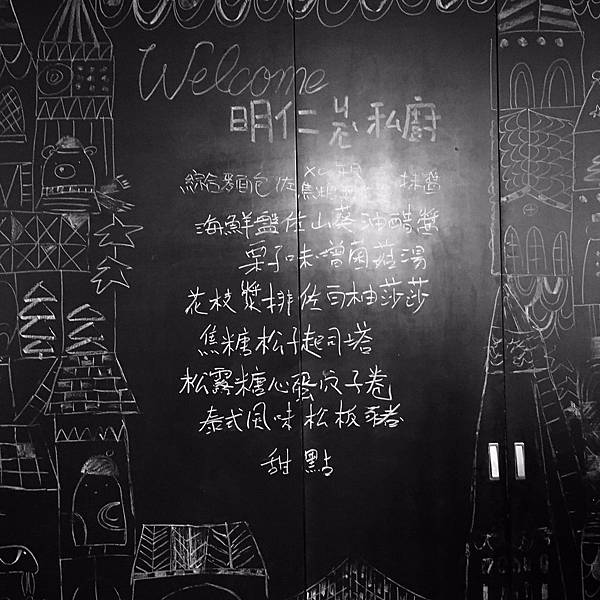 Welcome
明仁 私廚
綜合麵包佐 焦糖 抹醬
海鮮盤佐山葵油醋醬
栗子味噌菌菇湯
花枝漿排佐白柚莎莎
焦糖松子起司塔
松露糖心蛋皮子卷
泰式風味松板豬
甜點